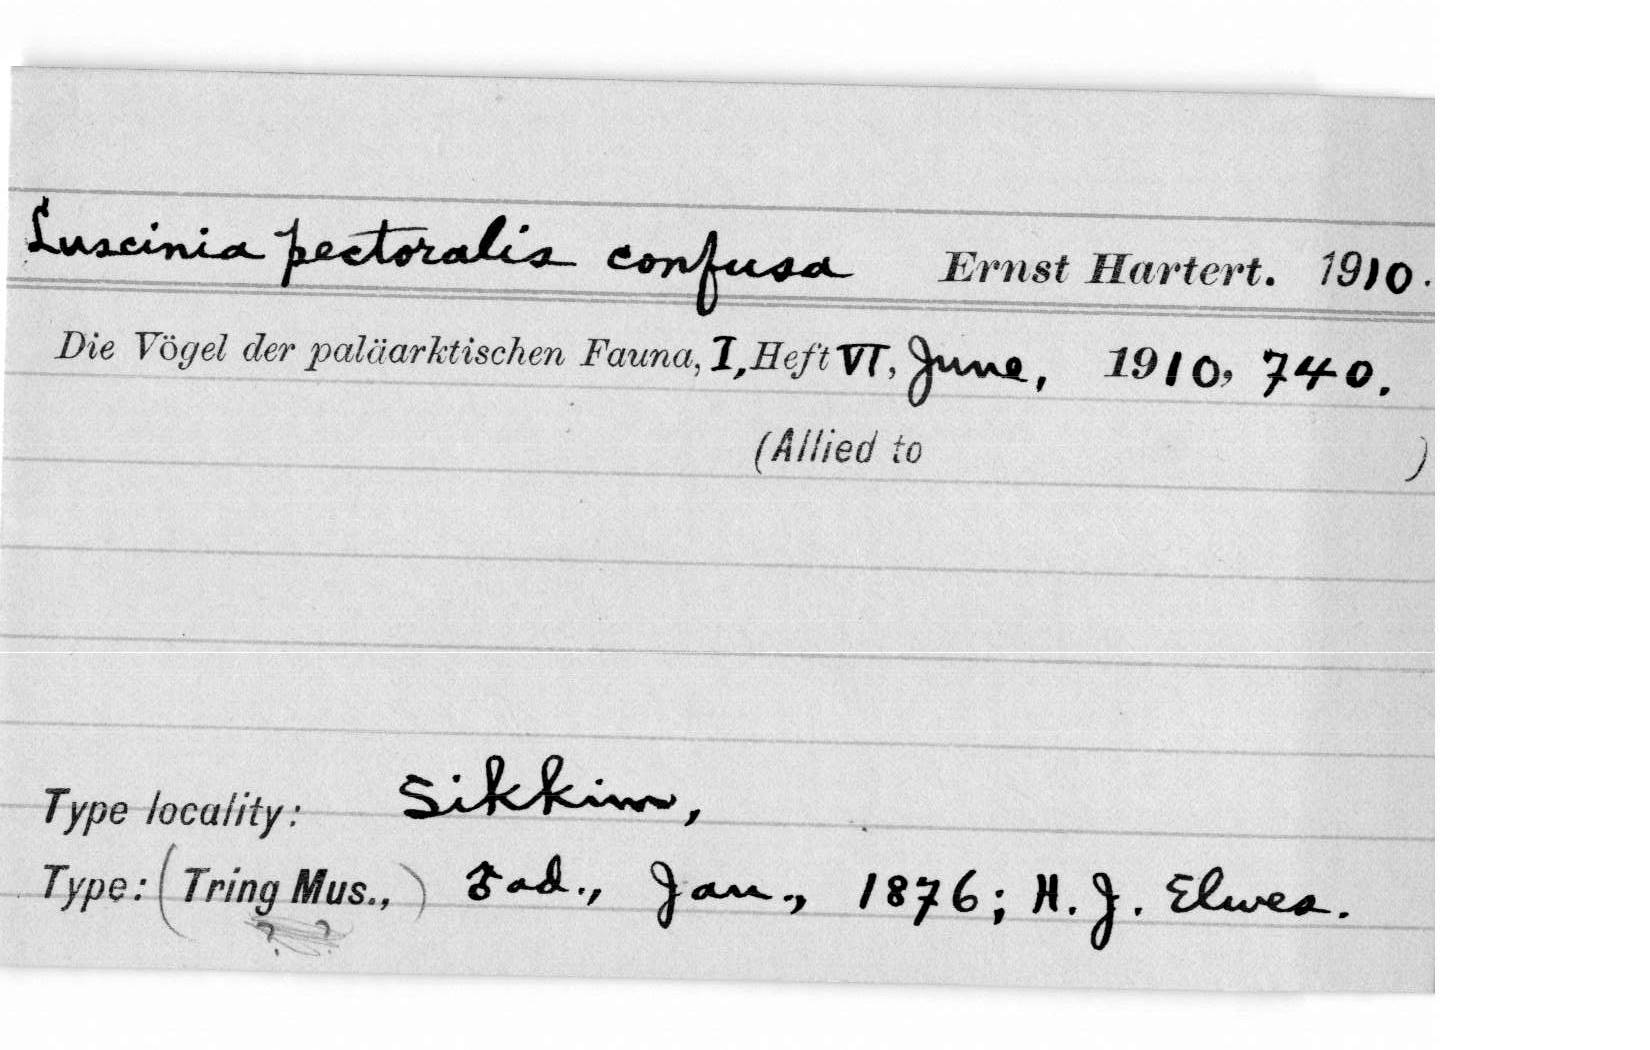 Luscinia pectoralis confusa Ernst Hartert. 1910.
Die Vögel der paläarktischen Fauna, I, Heft VI, June, 1910, 740.
(Allied to )
Type locality: Sikkim,
Type: (Tring Mus.,) ad., Jan., 1876; H. J. Elwes.
? ?